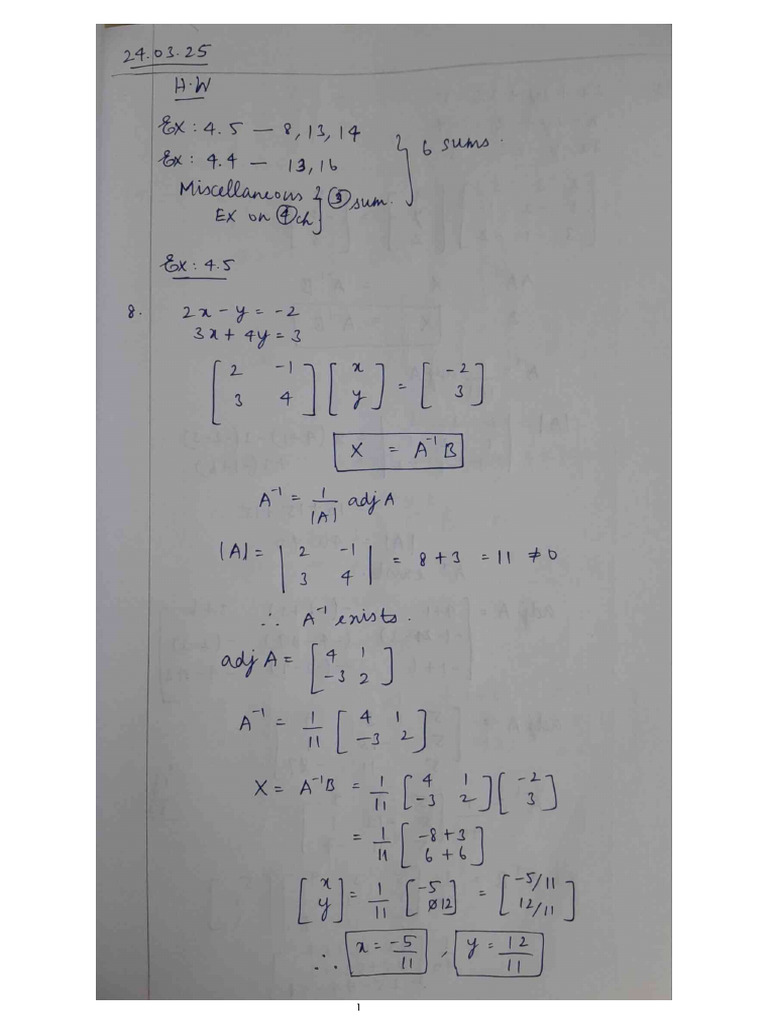 24.03.25
H.W
Ex : 4.5 — 8, 13, 14
Ex : 4.4 — 13, 16
} 6 sums.
Miscellaneous
Ex on ④ch
} ③ sum.
Ex : 4.5
8. 2x - y = -2
3x + 4y = 3
[2 -1; 3 4] [x; y] = [-2; 3]
X = A⁻¹B
A⁻¹ = 1/|A| adj A
|A| = |2 -1; 3 4| = 8 + 3 = 11 ≠ 0
∴ A⁻¹ exists.
adj A = [4 1; -3 2]
A⁻¹ = 1/11 [4 1; -3 2]
X = A⁻¹B = 1/11 [4 1; -3 2] [-2; 3]
= 1/11 [-8 + 3; 6 + 6]
[x; y] = 1/11 [-5; 12] = [-5/11; 12/11]
∴ x = -5/11 , y = 12/11
1